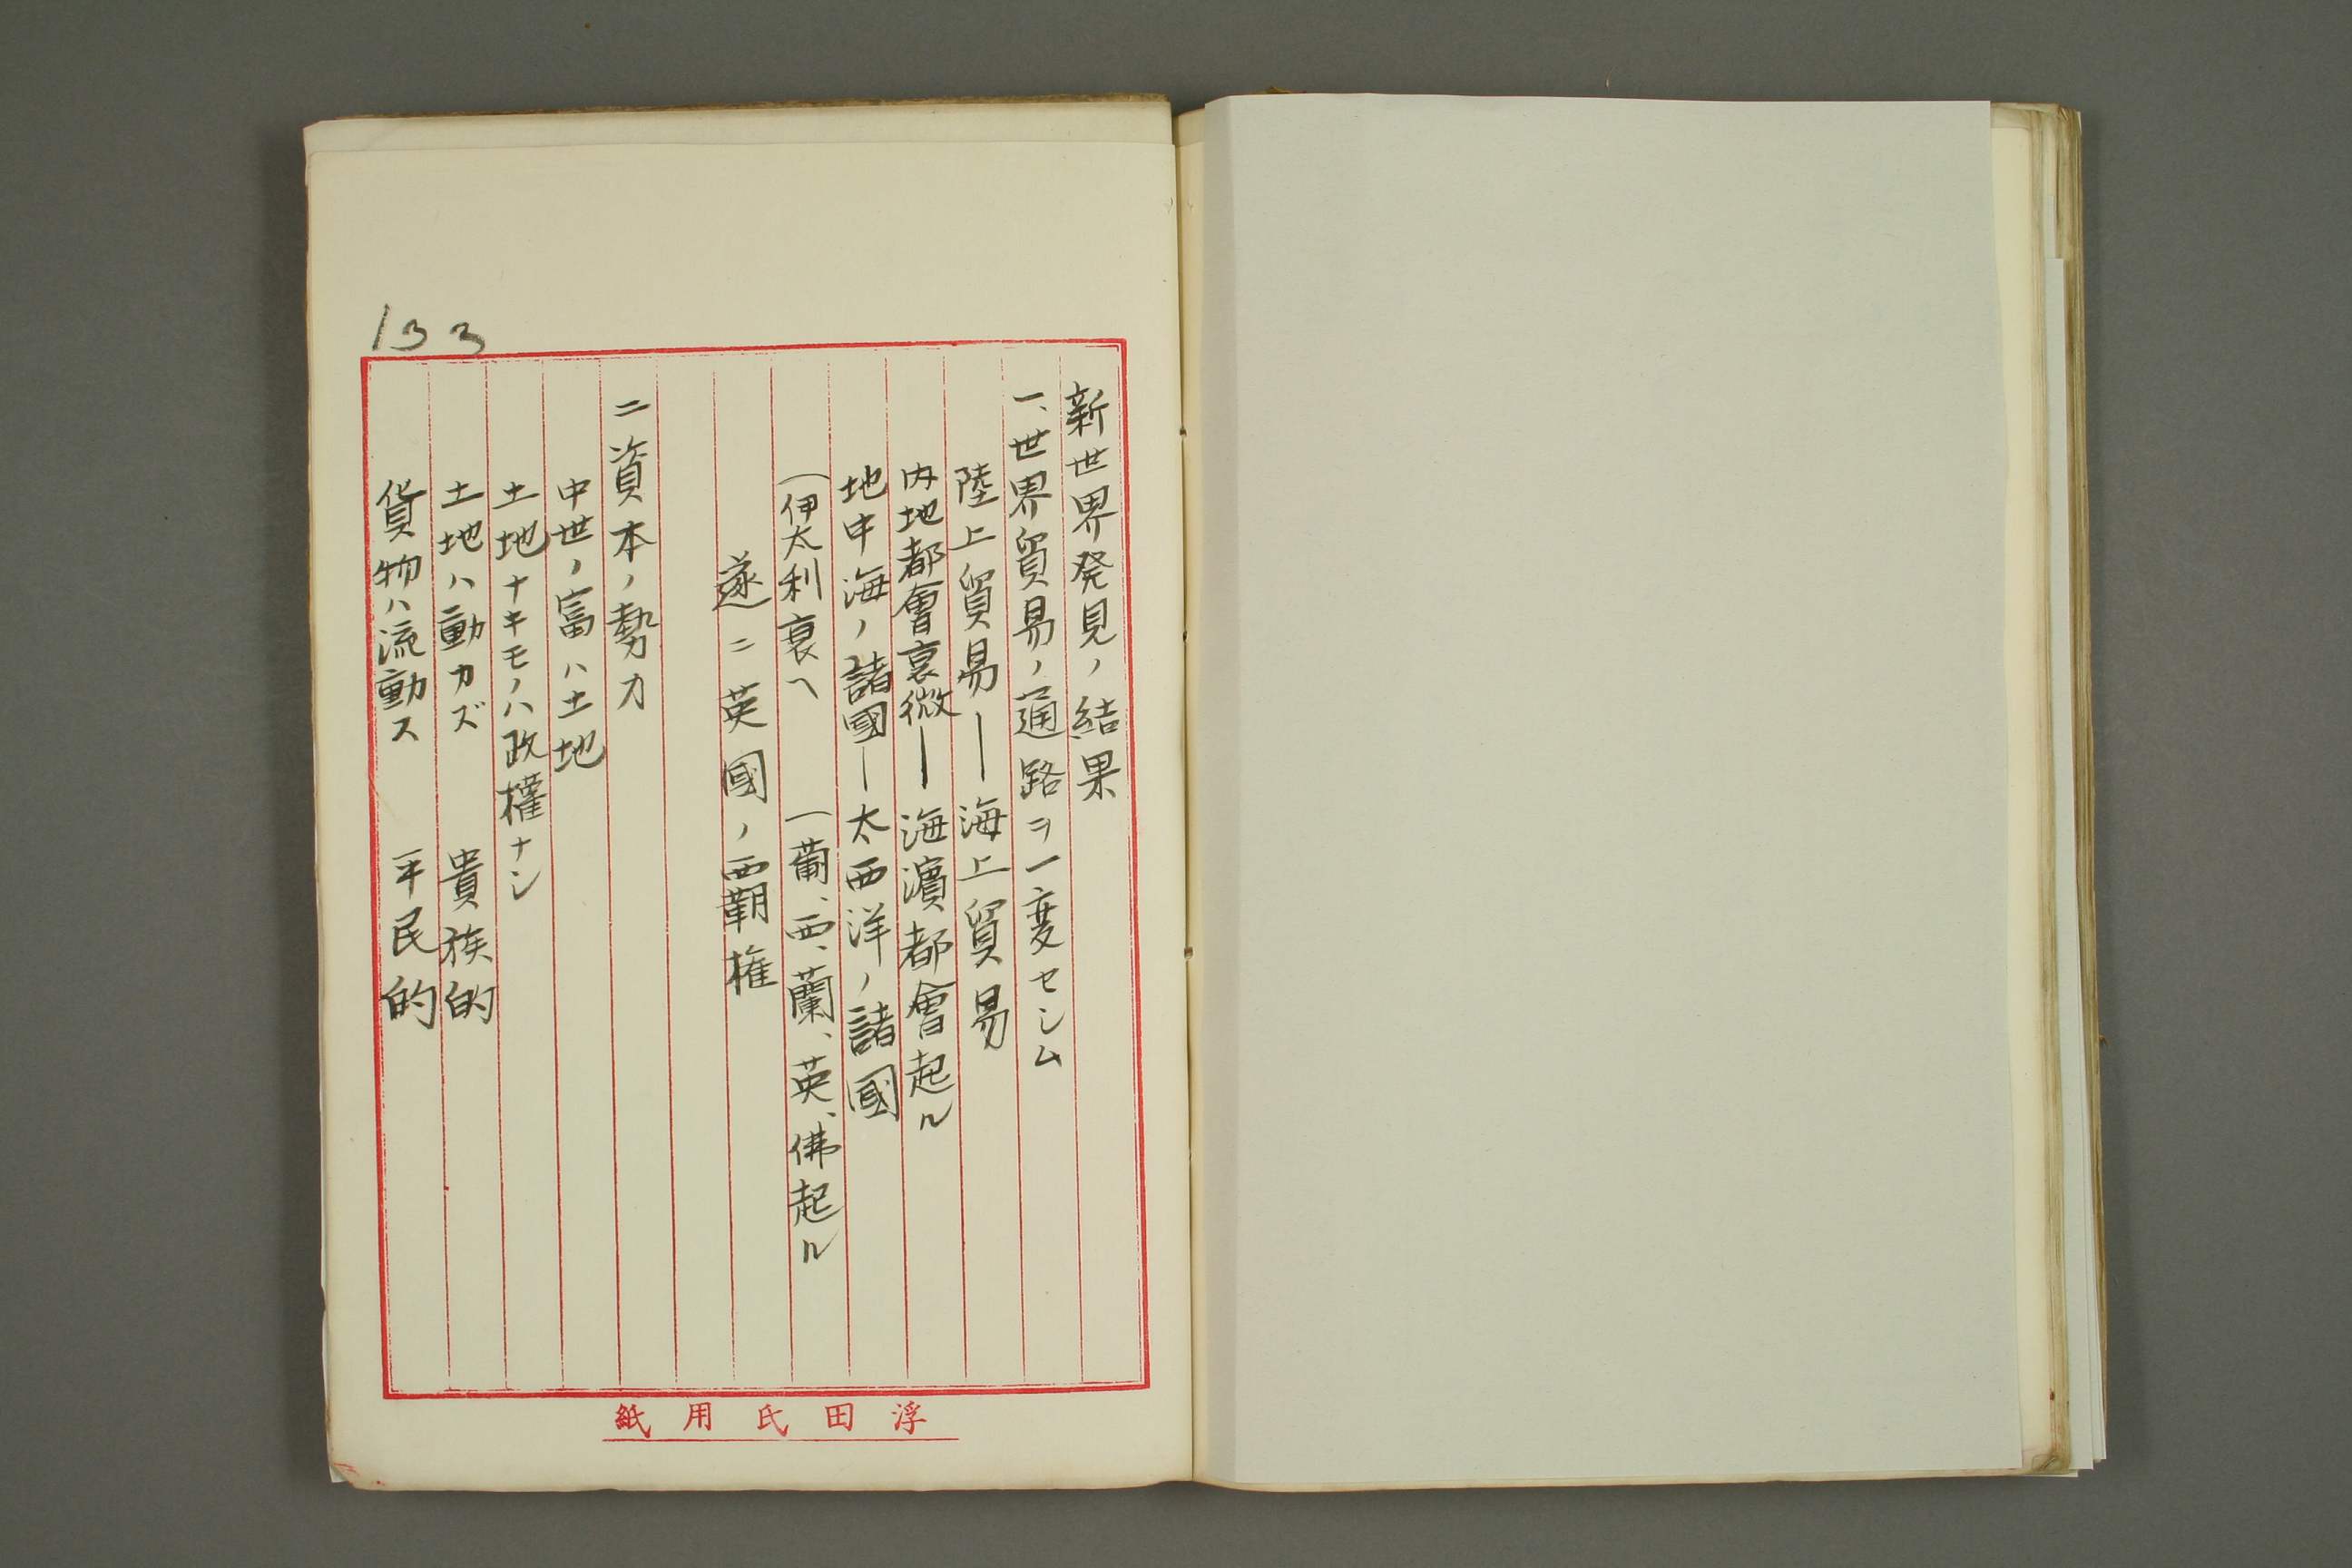 133
新世界発見ノ結果
一、世界貿易ノ通路ヲ一変セシム
陸上貿易―海上貿易
内地都會衰微―海濱都會起ル
地中海ノ諸國―太西洋ノ諸國
(伊太利衰ヘ (葡、西、蘭、英、佛起ル
遂ニ英國ノ覇権
二資本ノ勢力
中世ノ富ハ土地
土地ナキモノハ政權ナシ
土地ハ動カズ 貴族的
貨物ハ流動ス 平民的
浮田氏用紙